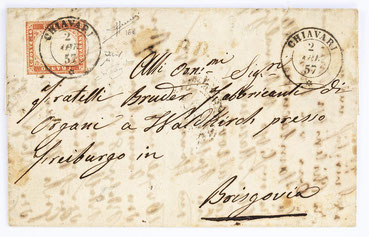 CHIAVARI
2
57
CHIAVARI
2
57
Alli Orn.mi Sig.ri
Fratelli Bruder Fabbricanti di
Organi a Waldkirch presso
Freiburgo in
Brisgovia